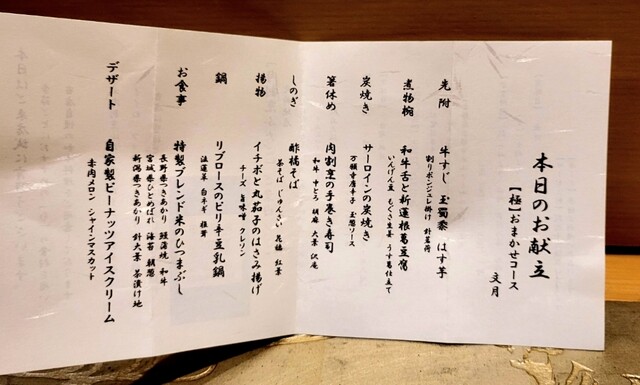 本日のお献立
【極】おまかせコース
文月
先附
牛すじ 玉蜀黍 はす芋
割りポンジュレ掛け 針茗荷
煮物椀
和牛舌と新蓮根葛豆腐
いんげん豆 もぐさ生姜 うす葛仕立て
炭焼き
サーロインの炭焼き
万願寺唐辛子 玉葱ソース
箸休め
肉割烹の手巻き寿司
和牛 中とろ 胡麻 大葉 沢庵
しのぎ
酢橘そば
茶そば じゅんさい 花穂 紅葉
揚物
イチボと丸茄子のはさみ揚げ
チーズ 旨味噌 クレソン
鍋
リブロースのピリ辛豆乳鍋
法蓮草 白ネギ 椎茸
お食事
特製ブレンド米のひつまぶし
長野県つきあかり 鰻蒲焼 和牛
宮城県ひとめぼれ 海苔 朝葱
新潟県つきあかり 針大葉 茶漬け地
デザート
自家製ピーナッツアイスクリーム
赤肉メロン シャインマスカット